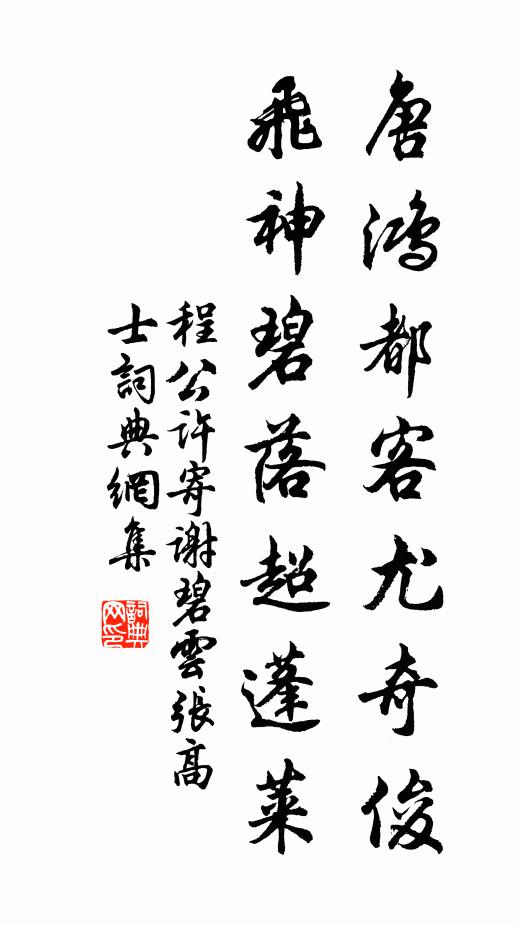 唐鴻都客尤奇俊
飛神碧落超蓬萊
程公許寄謝碧雲張高
士詞典網集
詞典
网印